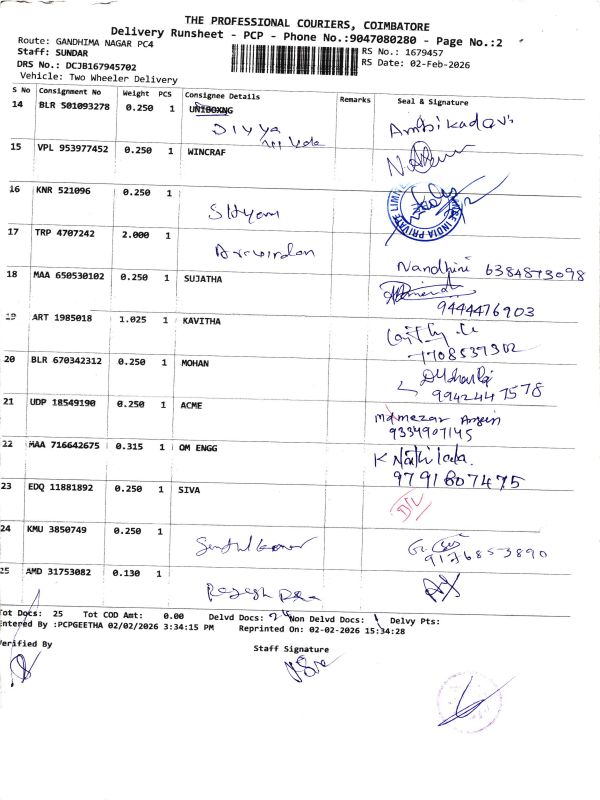 THE PROFESSIONAL COURIERS, COIMBATORE
Delivery Runsheet - PCP - Phone No.:9047080280 - Page No.:2
Route: GANDHIMA NAGAR PC4
RS No.: 1679457
Staff: SUNDAR
RS Date: 02-Feb-2026
DRS No.: DCJB167945702
Vehicle: Two Wheeler Delivery
S No Consignment No Weight PCS Consignee Details Remarks Seal & Signature
14 BLR 501093278 0.250 1 UNIBOXNG
Divya
Ambikadevi
15 VPL 953977452 0.250 1 WINCRAF
16 KNR 521096 0.250 1
Shyam
INDIA PRIVATE LIMITE
17 TRP 4707242 2.000 1
Aravindan
Nandhini 6384873098
18 MAA 650530102 0.250 1 SUJATHA
9444476903
19 ART 1985018 1.025 1 KAVITHA
20 BLR 670342312 0.250 1 MOHAN
9942447578
21 UDP 18549190 0.250 1 ACME
9334907145
22 MAA 716642675 0.315 1 OM ENGG
9791607475
23 EDQ 11881892 0.250 1 SIVA
D/L
24 KMU 3850749 0.250 1
Senthilkumar
9176853890
25 AMD 31753082 0.130 1
Tot Docs: 25 Tot COD Amt: 0.00 Delvd Docs: 24 Non Delvd Docs: 1 Delvy Pts:
Entered By :PCPGEETHA 02/02/2026 3:34:15 PM Reprinted On: 02-02-2026 15:34:28
Verified By
Staff Signature